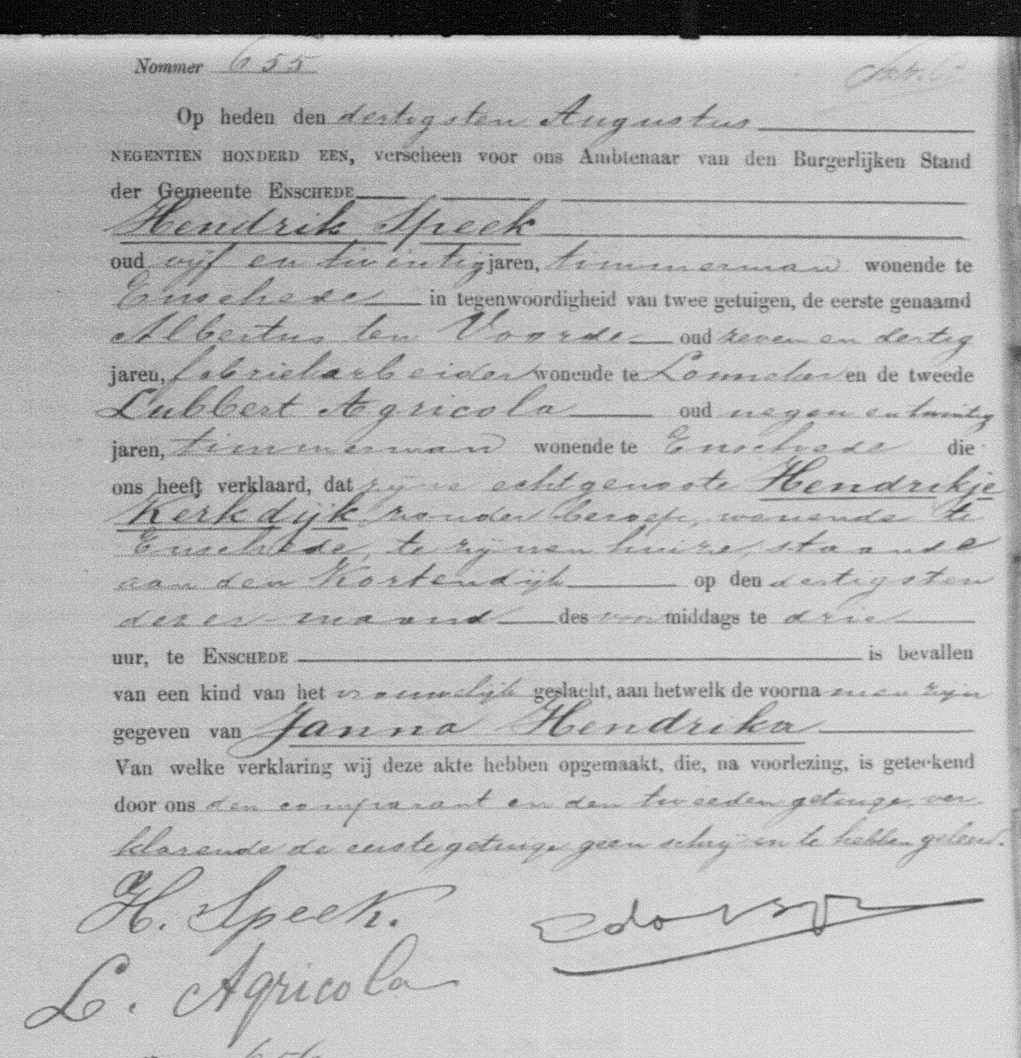 Nommer 655
Op heden den dertigsten Augustus
NEGENTIEN HONDERD EEN, verscheen voor ons Ambtenaar van den Burgerlijken Stand
der Gemeente ENSCHEDE
Hendrik Speek
oud vijf en twintig jaren, timmerman wonende te
Enschede in tegenwoordigheid van twee getuigen, de eerste genaamd
Albertus ten Voorde oud zeven en dertig
jaren, fabriekarbeider wonende te Lonneker en de tweede
Lubbert Agricola oud negen en twintig
jaren, timmerman wonende te Enschede die
ons heeft verklaard, dat zijne echtgenoote Hendrikje
Kerkdijk, zonder beroep, wonende te
Enschede, te zijnen huize, staande
aan den Kortendijk op den dertigsten
dezer maand des voormiddags te drie
uur, te ENSCHEDE is bevallen
van een kind van het vrouwelijk geslacht, aan hetwelk de voornamen zijn
gegeven van Janna Hendrika
Van welke verklaring wij deze akte hebben opgemaakt, die, na voorlezing, is geteekend
door ons den comparant en den tweeden getuige, ver-
klarende de eerste getuige geen schrijven te hebben geleerd.
H. Speek.
L. Agricola
656